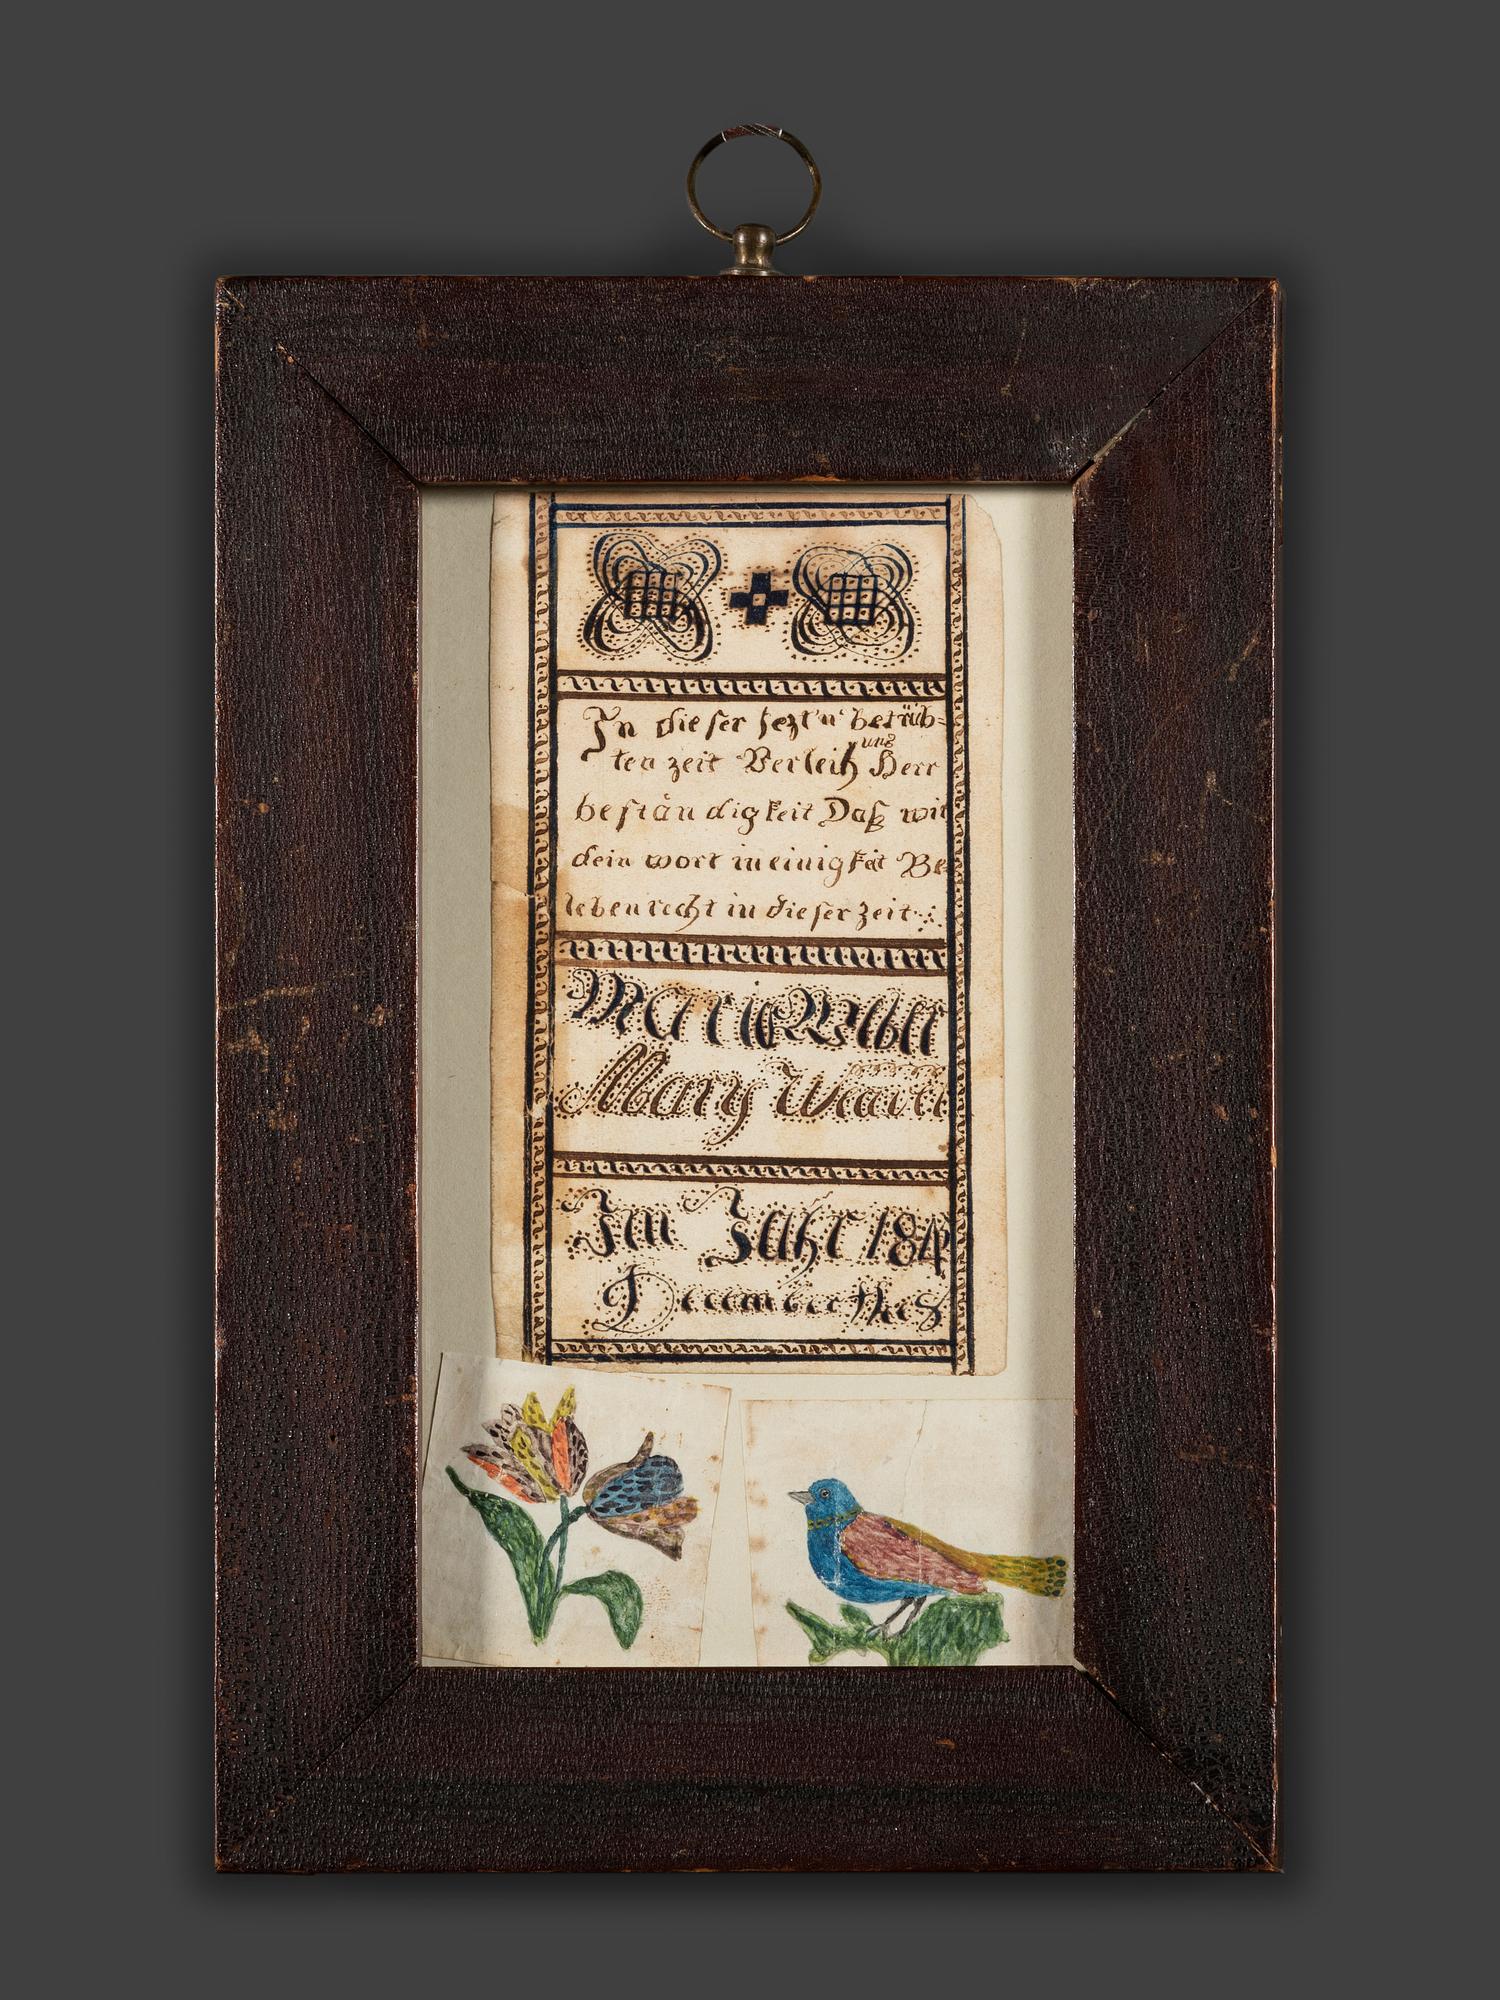 In dieser lezt'n betrüb-
ten zeit Verleih uns Herr
beständigkeit Daß wir
dein wort in einigkeit Be
leben recht in dieser Zeit
Maria Weber
Mary Weaver
Im Jahr 184
December the 8